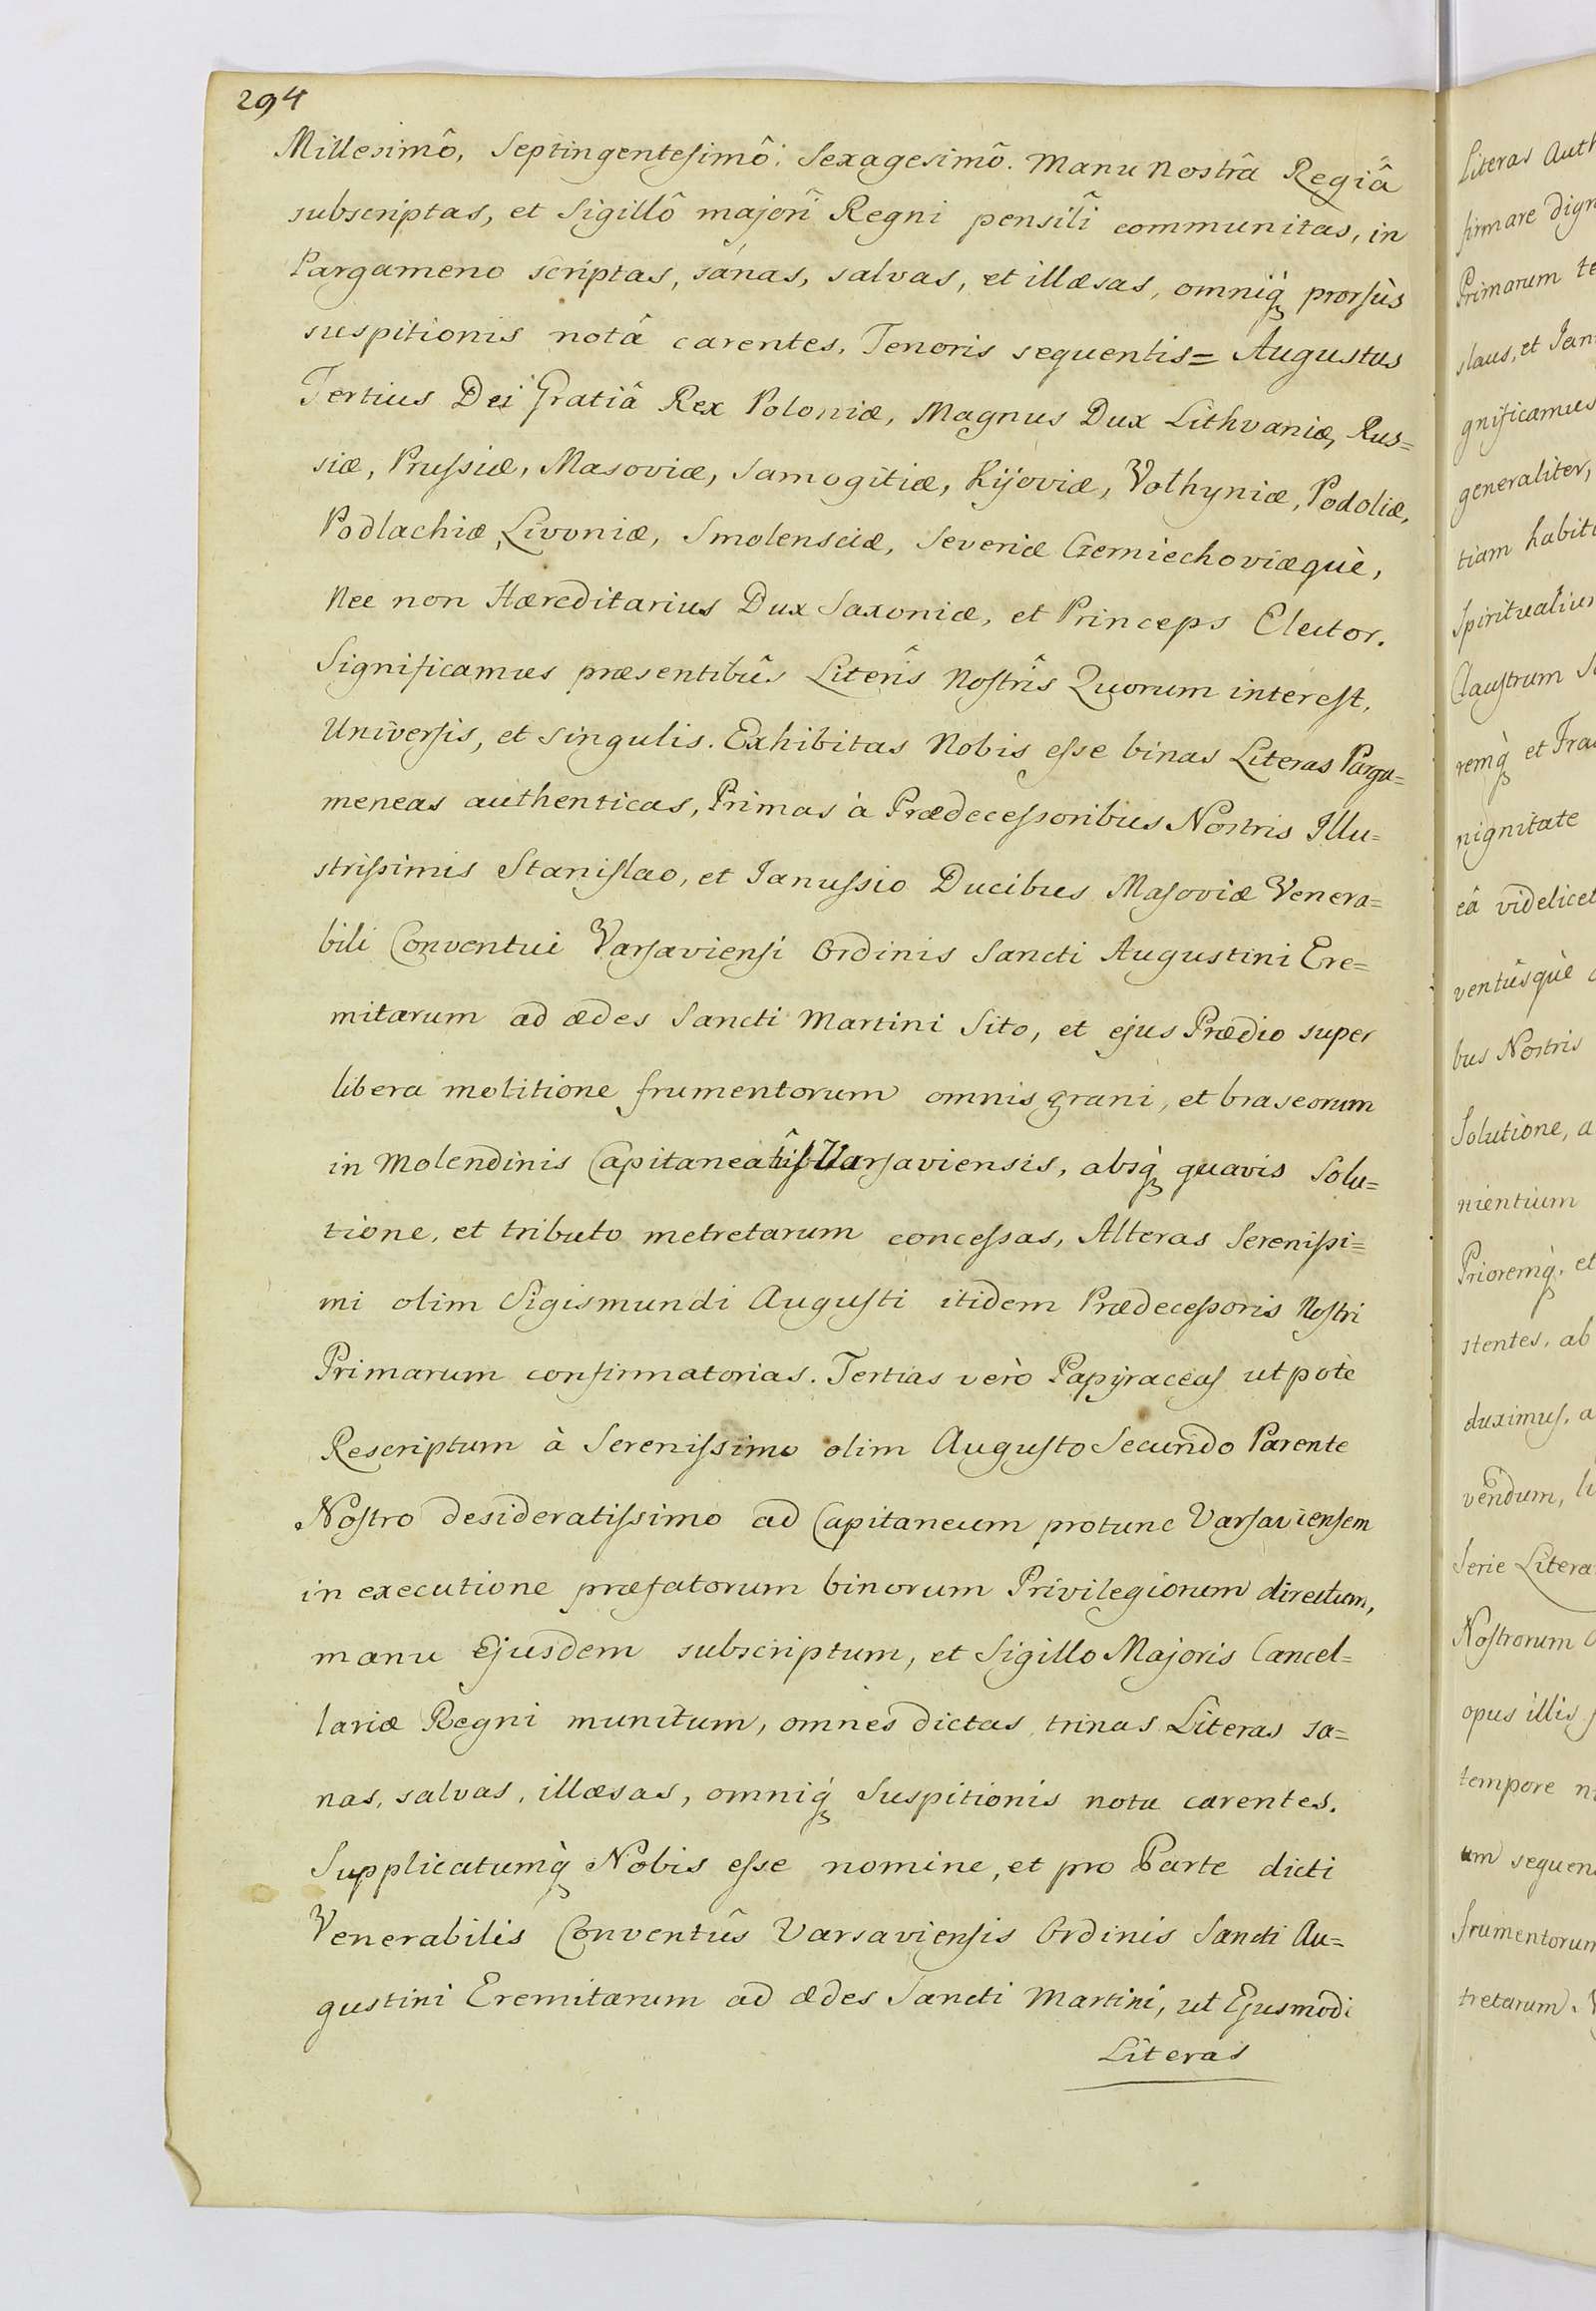 294
Millesimô, Septingentesimô: Sexagesimô. Manu Nostrâ Regiâ
subscriptas, et Sigillô majorî Regni pensilî communitas, in
Pargameno scriptas, sanas, salvas, et illæsas, omniq́ꝫ prorsùs
suspitionis notâ carentes. Tenoris sequentis= Augustus
Tertius Dei Gratiâ Rex Poloniæ, Magnus Dux Lithvaniæ, Rus=
siæ, Prussiæ, Masoviæ, Samogitiæ, Kijoviæ, Volhyniæ, Podoliæ,
Podlachiæ, Livoniæ, Smolensciæ, Severiæ Czerniechoviæquè,
Nec non Hæreditarius Dux Saxoniæ, et Princeps Elector.
Significamus præsentibûs Literîs Nostrîs Quorum interest,
Universis, et singulis. Exhibitas Nobis esse binas Literas Parga=
meneas authenticas, Primas à Prædecessoribus Nostris Illu=
strissimis Stanislao, et Ianussio Ducibus Masoviæ Venera=
bili Conventui Varsaviensi Ordinis Sancti Augustini Ere=
mitarum ad ædes Sancti Martini Sito, et ejus Prædio super
libera molitione frumentorum omnis grani, et braseorum
in Molendinis Capitaneatûs Varsaviensis, absq́ꝫ quavis Solu=
tione, et tributo metretarum concessas, Alteras Serenissi=
mi olim Sigismundi Augusti itidem Prædecessoris Nostri
Primarum confirmatorias. Tertias verò Papÿraceas utpotè
Rescriptum à Serenissimo olim Augusto Secundo Parente
Nostro desideratissimo ad Capitaneum protunc Varsaviensem
in executione præfatorum binorum Privilegiorum directum,
manu Ejusdem subscriptum, et Sigillo Majoris Cancel=
lariæ Regni munitum, omnes dictas trinas Literas sa=
nas, salvas, illæsas, omniq́ꝫ Suspitionis nota carentes.
Supplicatumq́ꝫ Nobis esse nomine, et pro Parte dicti
Venerabilis Conventûs Varsaviensis Ordinis Sancti Au=
gustini Eremitarum ad ædes Sancti Martini, ut Ejusmodi
Literas
Literas Auth
firmare dign
Primarum te
slaus, et Ian
gnificamus
generaliter,
tiam habit
Spiritualiu
Claustrum S
remq́ꝫ et Fra
nignitate
eâ videlicet
ventûsquè
bus Nostris
Solutione, a
nientium
Prioremq́ꝫ, et
stentes, ab
duximus, a
vendum, li
Serie Litera
Nostrorum
opus illis
tempore n
um sequen
frumentorum
tretarum.